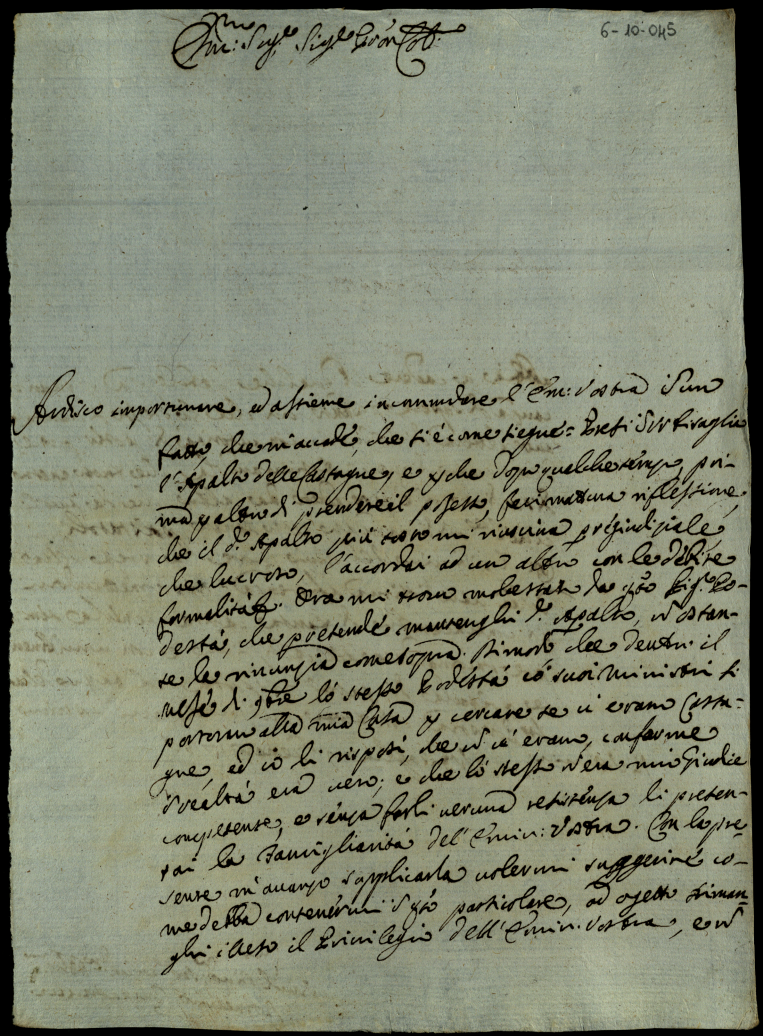 6-10-045
Em: Sig.re Sig.re Pron Col:
Ardisco importunare, ed assieme incommodare l'Em: Vostra s'un
fatto, che m'accade, che si è come siegue = Presi
l'Apalto delle Castagne, e p che dopo qualche tempo, pri-
ma p altro di prendere il possesso, feci matura riflessione,
che il d.o Apalto più tosto mi riusciva pregiudiziale,
che lucroso, l'accordai ad un altro con le debite
formalità. Ora mi trovo molestato da q.to Sig.re Po-
destà, che pretende mantenghi d.o Apalto, nostan-
te la rinunzia come sopra. che dentro il
mese di 9bre lo stesso Podestà co suoi Ministri si
portorno alla mia Casa p cercare se vi erano Casta-
gne, ed io li risposi, che n ce erano, conforme
realtà era vero; e che lo stesso n'era mio Giudice
competente, e senza farli veruna resistenza li presen-
tai la Famigliarità dell'Emin: Vostra. Con la pre-
sente m'avanzo supplicarla volermi suggerire co-
me debba contenermi q.to particolare, ad ogetto riman-
ghi illeso il Privilegio dell'Emin: Vostra, e n